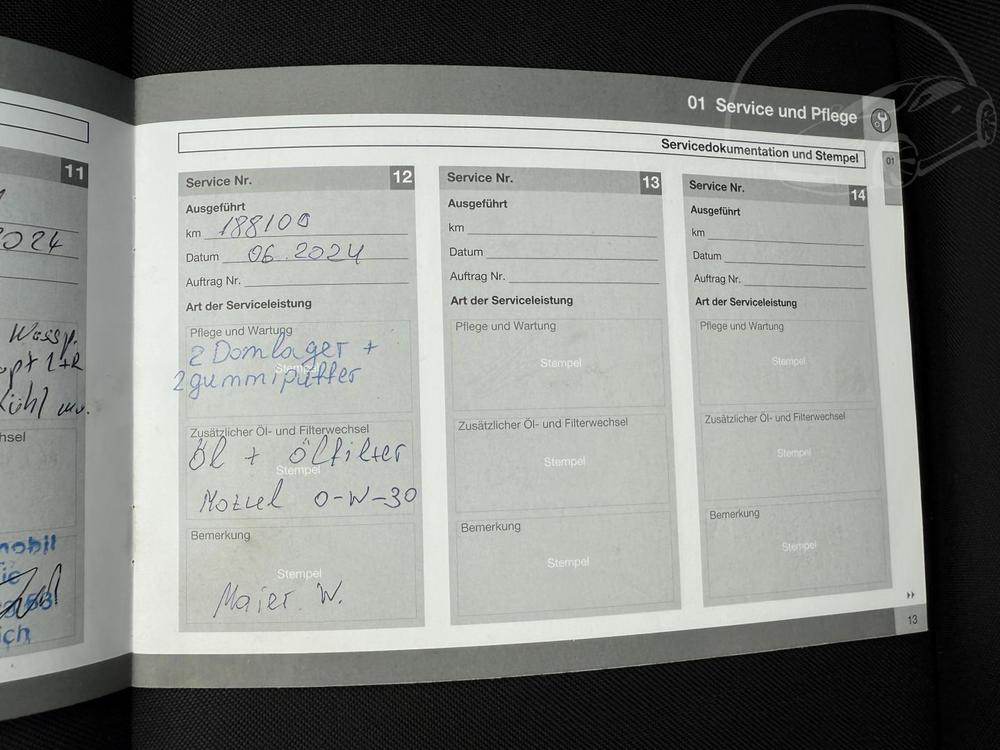 01 Service und Pflege
Servicedokumentation und Stempel
01
11
2024
Wassp.
L+R
Kühl
hsel
mobil
ie
ich
Service Nr. 12
Ausgeführt
km 188100
Datum 06.2024
Auftrag Nr.
Art der Serviceleistung
Pflege und Wartung
2 Domlager +
Stempel
2 gummipuffer
Zusätzlicher Öl- und Filterwechsel
Öl + Ölfilter
Stempel
Motuel 0-W-30
Bemerkung
Stempel
Maier W.
Service Nr. 13
Ausgeführt
km
Datum
Auftrag Nr.
Art der Serviceleistung
Pflege und Wartung
Stempel
Zusätzlicher Öl- und Filterwechsel
Stempel
Bemerkung
Stempel
Service Nr. 14
Ausgeführt
km
Datum
Auftrag Nr.
Art der Serviceleistung
Pflege und Wartung
Stempel
Zusätzlicher Öl- und Filterwechsel
Stempel
Bemerkung
Stempel
13